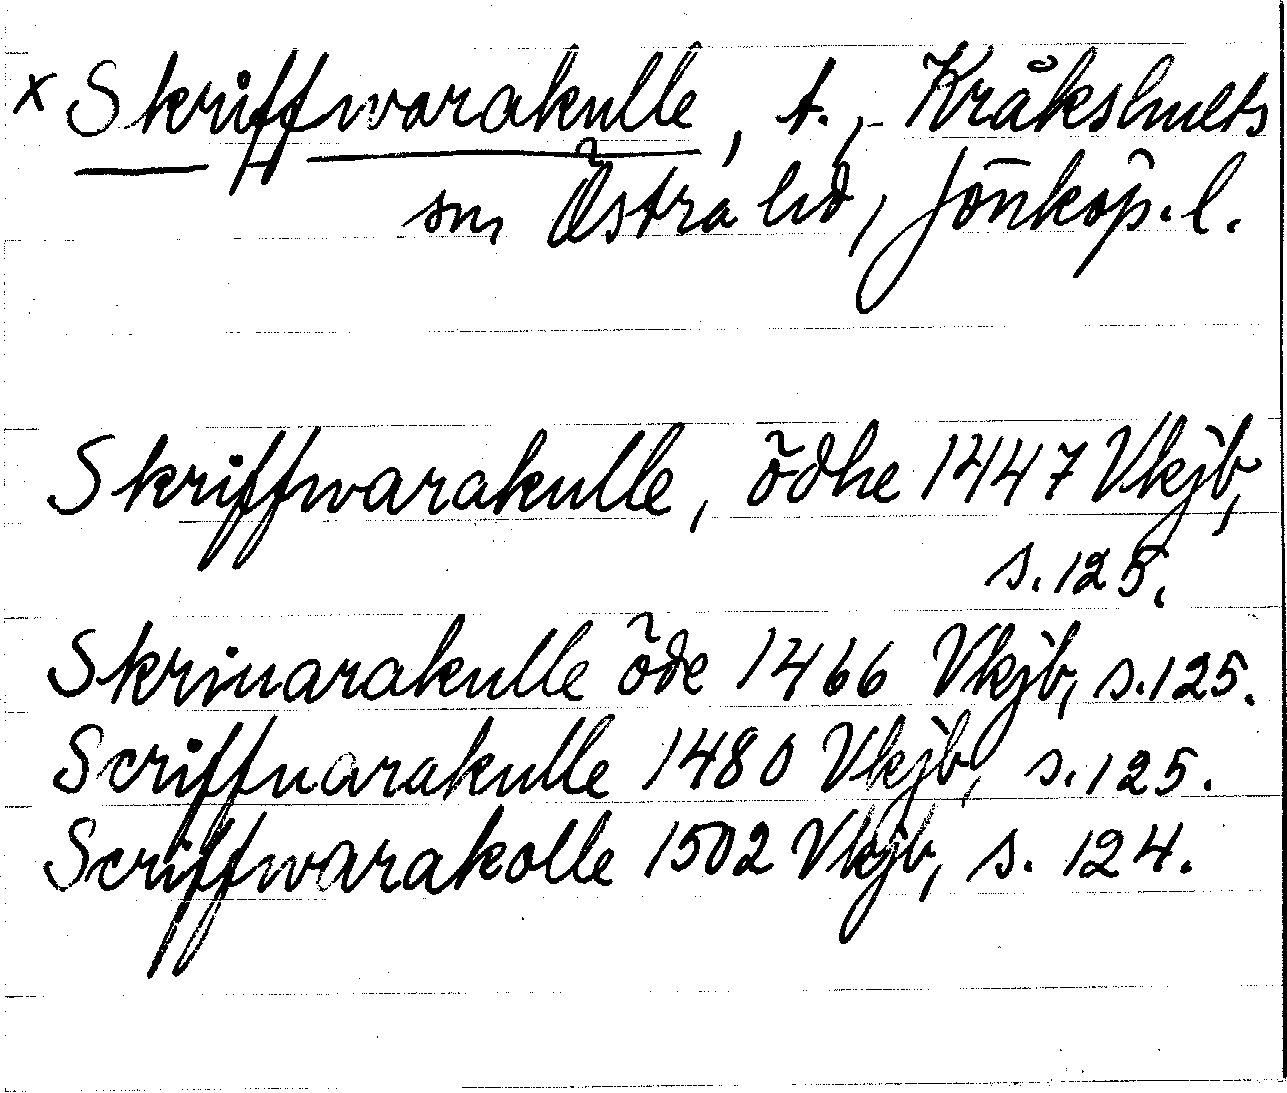 x Skriffwarakulle, t., Kråkshults
sn Östra hd, Jönköp. l.
Skriffwarakulle, ödhe 1447 Vkjb,
s. 125.
Skriuarakulle öde 1466 Vkjb, s. 125.
Scriffuarakulle 1480 Vkjb, s. 125.
Scriffwarakolle 1502 Vkjb, s. 124.